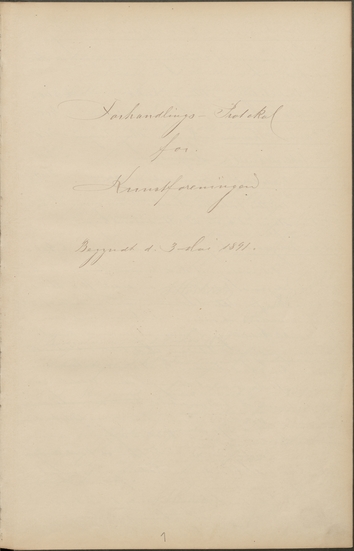 Forhandlings-Protokol
for
Kunstforeningen
Begyndt d. 3 Mai 1891.
1